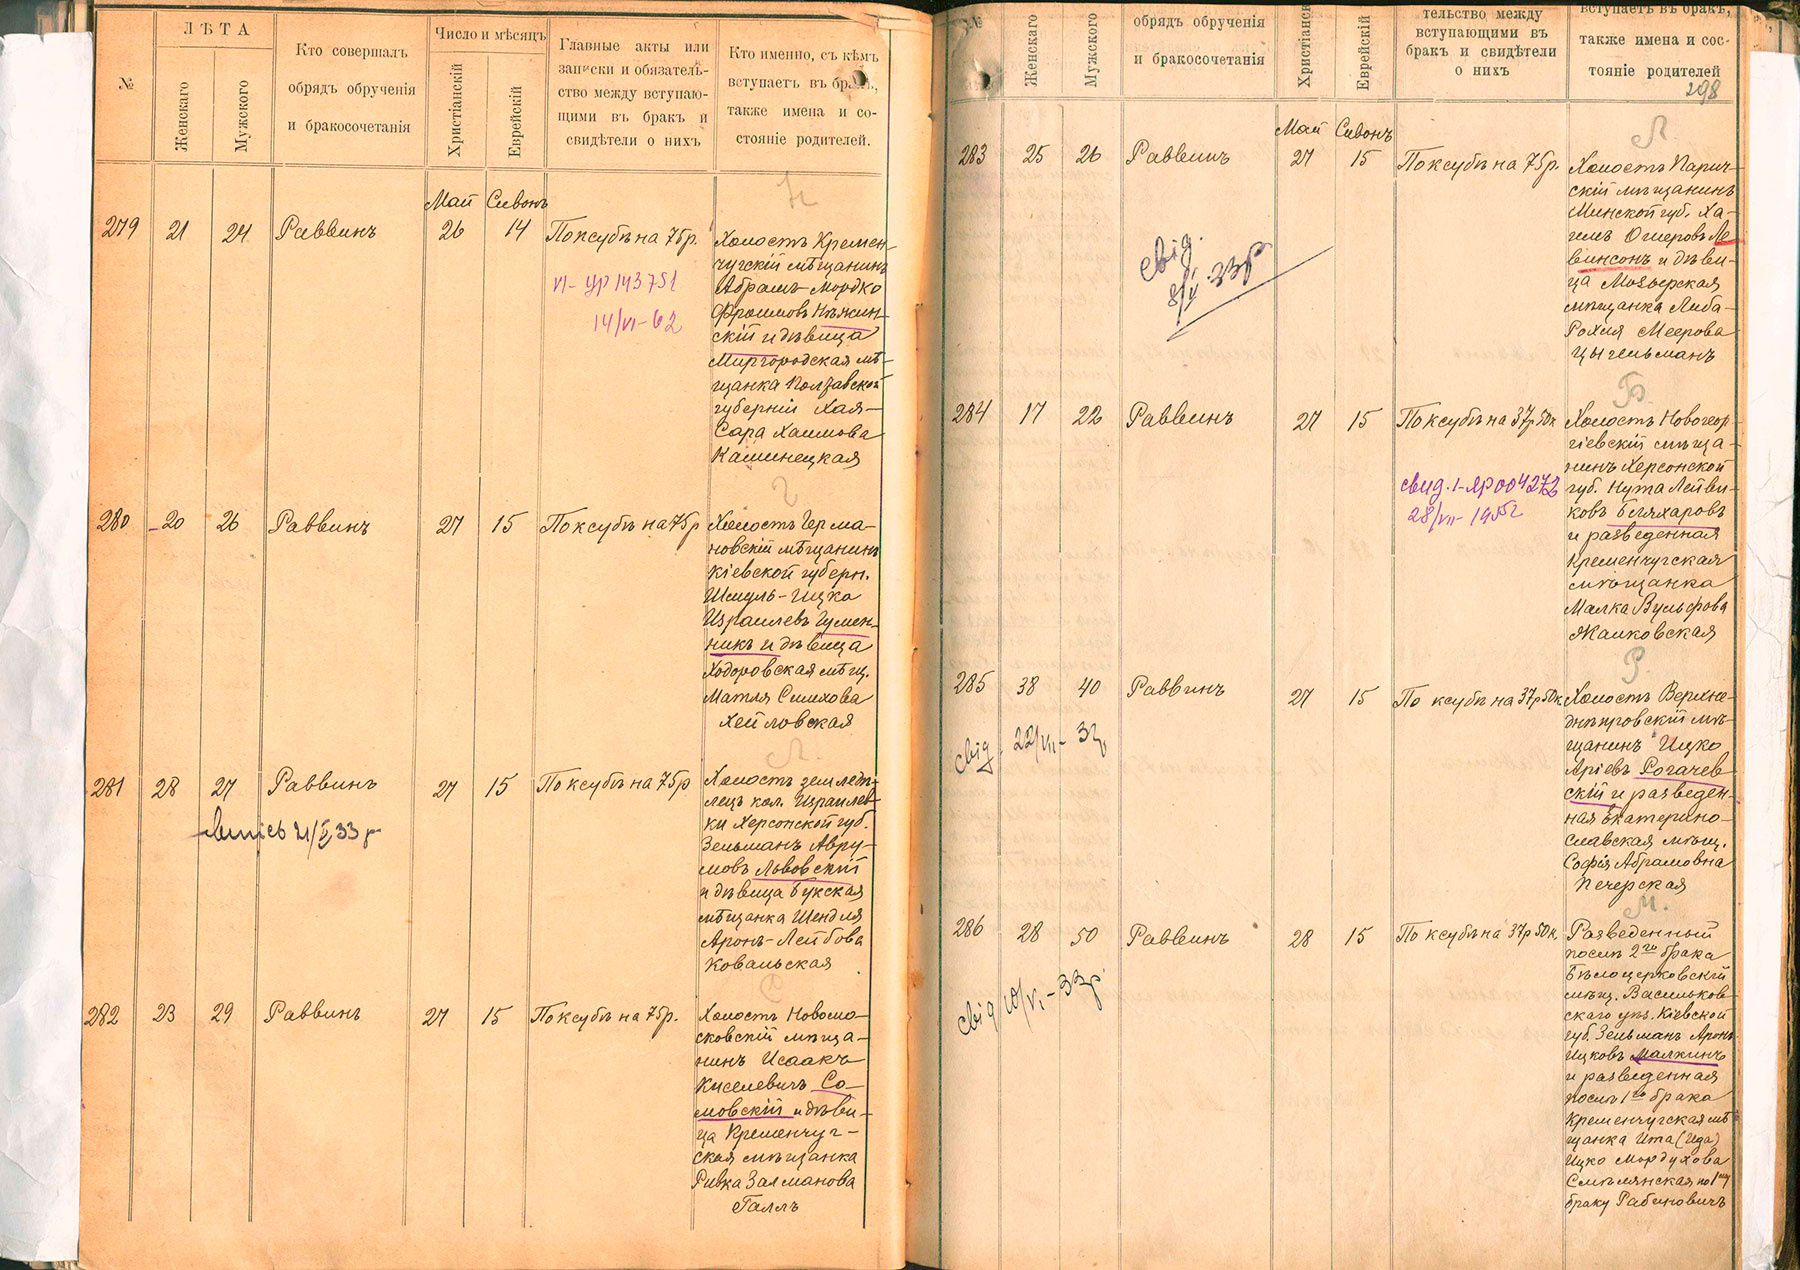 №
ЛѢТА
Женскаго
Мужского
Кто совершалъ
обрядъ обрученія
и бракосочетанія
Число и мѣсяцъ
Христіанскій
Еврейскій
Главные акты или
записки и обязатель-
ство между вступаю-
щими въ бракъ и
свидѣтели о нихъ
Кто именно, съ кѣмъ
вступаетъ въ бракъ,
также имена и со-
стояніе родителей.
Н
Май Сивонъ
279 21 24 Раввинъ 26 14 По ксубѣ на 75р.
VI-УР 143751
14/VI-62
Холостъ Кремен-
чугскій мѣщанинъ
Абрамъ-Мордко
Фроимовъ Нѣжин-
скій и дѣвица
Миргородская мѣ-
щанка Полтавской
губерніи Хая-
Сара Хаимова
Каминецкая
Г
280 20 26 Раввинъ 27 15 По ксубѣ на 75р
Холостъ Герма-
новскій мѣщанинъ
Кіевской губерн.
Шмуль-Ицко
Израилевъ Гумен-
никъ и дѣвица
Ходоровская мѣщ.
Матля Симхова
Хейловская
Л.
281 28 27 Раввинъ 27 15 По ксубѣ на 75р
21/X 33р
Холостъ землед-
лецъ кол. Израилев-
ки Херсонской губ.
Зельманъ Авру-
мовъ Львовскій
и дѣвица Букская
мѣщанка Шендля
Аронъ-Лейбова
Ковальская
С
282 23 29 Раввинъ 27 15 По ксубѣ на 75р.
Холостъ Новомо-
сковскій мѣща-
нинъ Исаакъ
Киселевичъ Со-
мовскій и дѣви-
ца Кременчуг-
ская мѣщанка
Ривка Залманова
Галлъ
№
Женскаго
Мужского
обрядъ обрученія
и бракосочетанія
Христіанскій
Еврейскій
тельство между
вступающими въ
бракъ и свидѣтели
о нихъ
вступаетъ въ бракъ,
также имена и сос-
тояніе родителей
298
Л
Май Сивонъ
283 25 26 Раввинъ 27 15 По ксубѣ на 75р.
свід.
8/V 33р
Холостъ Парич-
скій мѣщанинъ
Минской губ. Ха-
имъ Ошеровъ Ле
винсонъ и дѣви-
ца Мозырская
мѣщанка Либа-
Рохля Меерова
Цыгельманъ
Б
284 17 22 Раввинъ 27 15 По ксубѣ на 37р 50к
свид. I-ЯР 004272
28/VII-1955г
Холостъ Новогеор
гіевскій мѣща-
нинъ Херсонской
губ. Нута Лейви-
ковъ Бегяхаровъ
и разведенная
Кременчугская
мѣщанка
Малка Вульфова
Жаиковская
Р
285 38 40 Раввинъ 27 15 По ксубѣ на 37р 50к
свід. 22/VII-33р
Холостъ Верхне-
днѣпровскій мѣ-
щанинъ Ицко
Аріевъ Рогачев
скій и разведен-
ная Екатерино-
славская мѣщ.
Софія Абрамовна
Печерская
М.
286 28 50 Раввинъ 28 15 По ксубѣ на 37р 50к.
свід 10/VI-33р
Разведенный
послѣ 2го брака
Бѣлоцерковскій
мѣщ. Васильков-
скаго уѣз. Кіевской
губ. Зельманъ Аронъ
Ицковъ Малкинъ
и разведенная
послѣ 1го брака
Кременчугская мѣ
щанка Ита (Ида)
Ицко Мордухова
Смѣлянская по 1му
браку Рабиновичъ